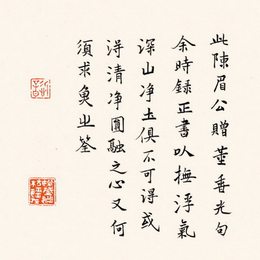 此陳眉公贈董香光句
余時錄正書以撫浮氣
深山净土俱不可得或
淂清净圓融之心又何
須求魚之筌